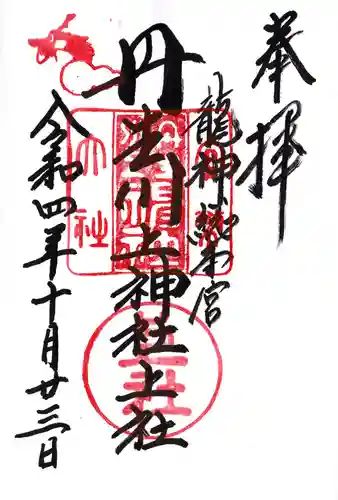 奉拝
龍神総本宮
丹生川上神社上社
令和四年十月廿三日
大社